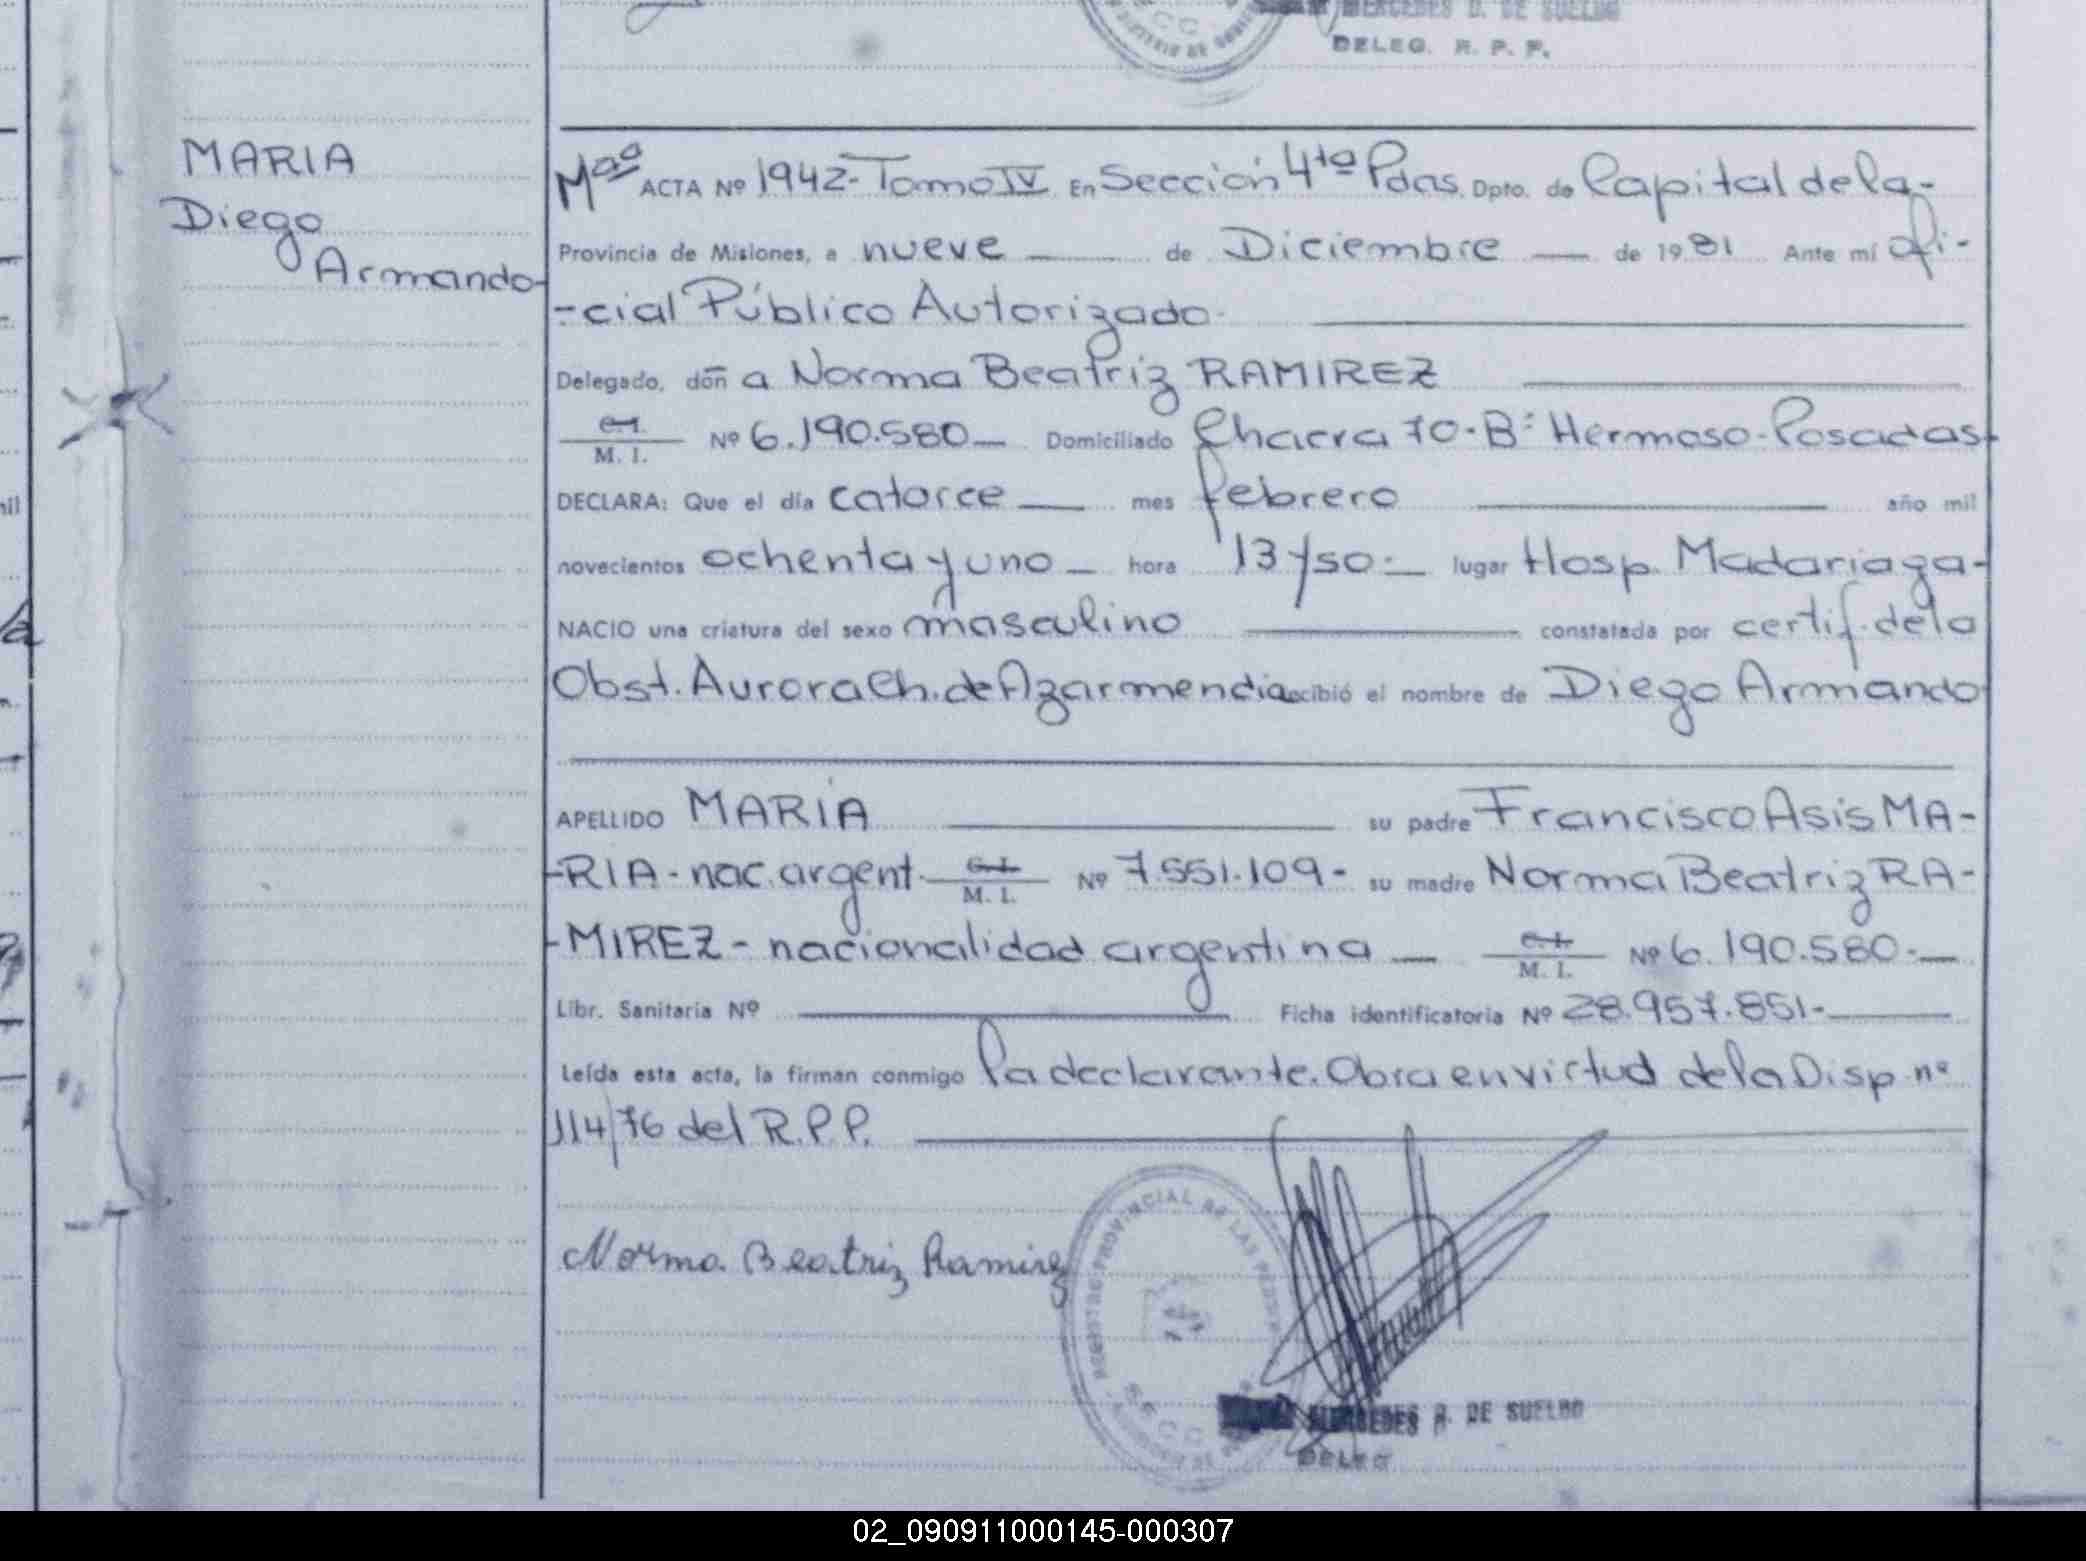 MERCEDES D. DE SUELDO
DELEG. R. P. P.
MARIA
Diego
Armando
ACTA Nº 1942-Tomo IV En Sección 4ta Pdas. Dpto. de Capital de la-
Provincia de Misiones, a nueve de Diciembre de 1981 Ante mí Ofi-
-cial Público Autorizado.
Delegado, don a Norma Beatriz RAMIREZ
C.I.
M. I. Nº 6.190.580 Domiciliado Chacra 70-Bº Hermoso-Posadas
DECLARA: Que el día catorce mes febrero año mil
novecientos ochenta y uno hora 13 y 50 lugar Hosp. Madariaga-
NACIO una criatura del sexo masculino constatada por certif. de la
Obst. Aurora Ch. de Azarmendia recibió el nombre de Diego Armando
APELLIDO MARIA su padre Francisco Asis MA-
-RIA-nac. argent. C.I. M. I. Nº 7.551.109- su madre Norma Beatriz RA-
-MIREZ-nacionalidad argentina C.I. M. I. Nº 6.190.580-
Libr. Sanitaria Nº Ficha identificatoria Nº 28.957.851-
Leída esta acta, la firman conmigo la declarante. Obra en virtud de la Disp. nº
114/76 del R.P.P.
Norma Beatriz Ramirez
REGISTRO PROVINCIAL DE LAS
MERCEDES D. DE SUELDO
DELEG
02_090911000145-000307